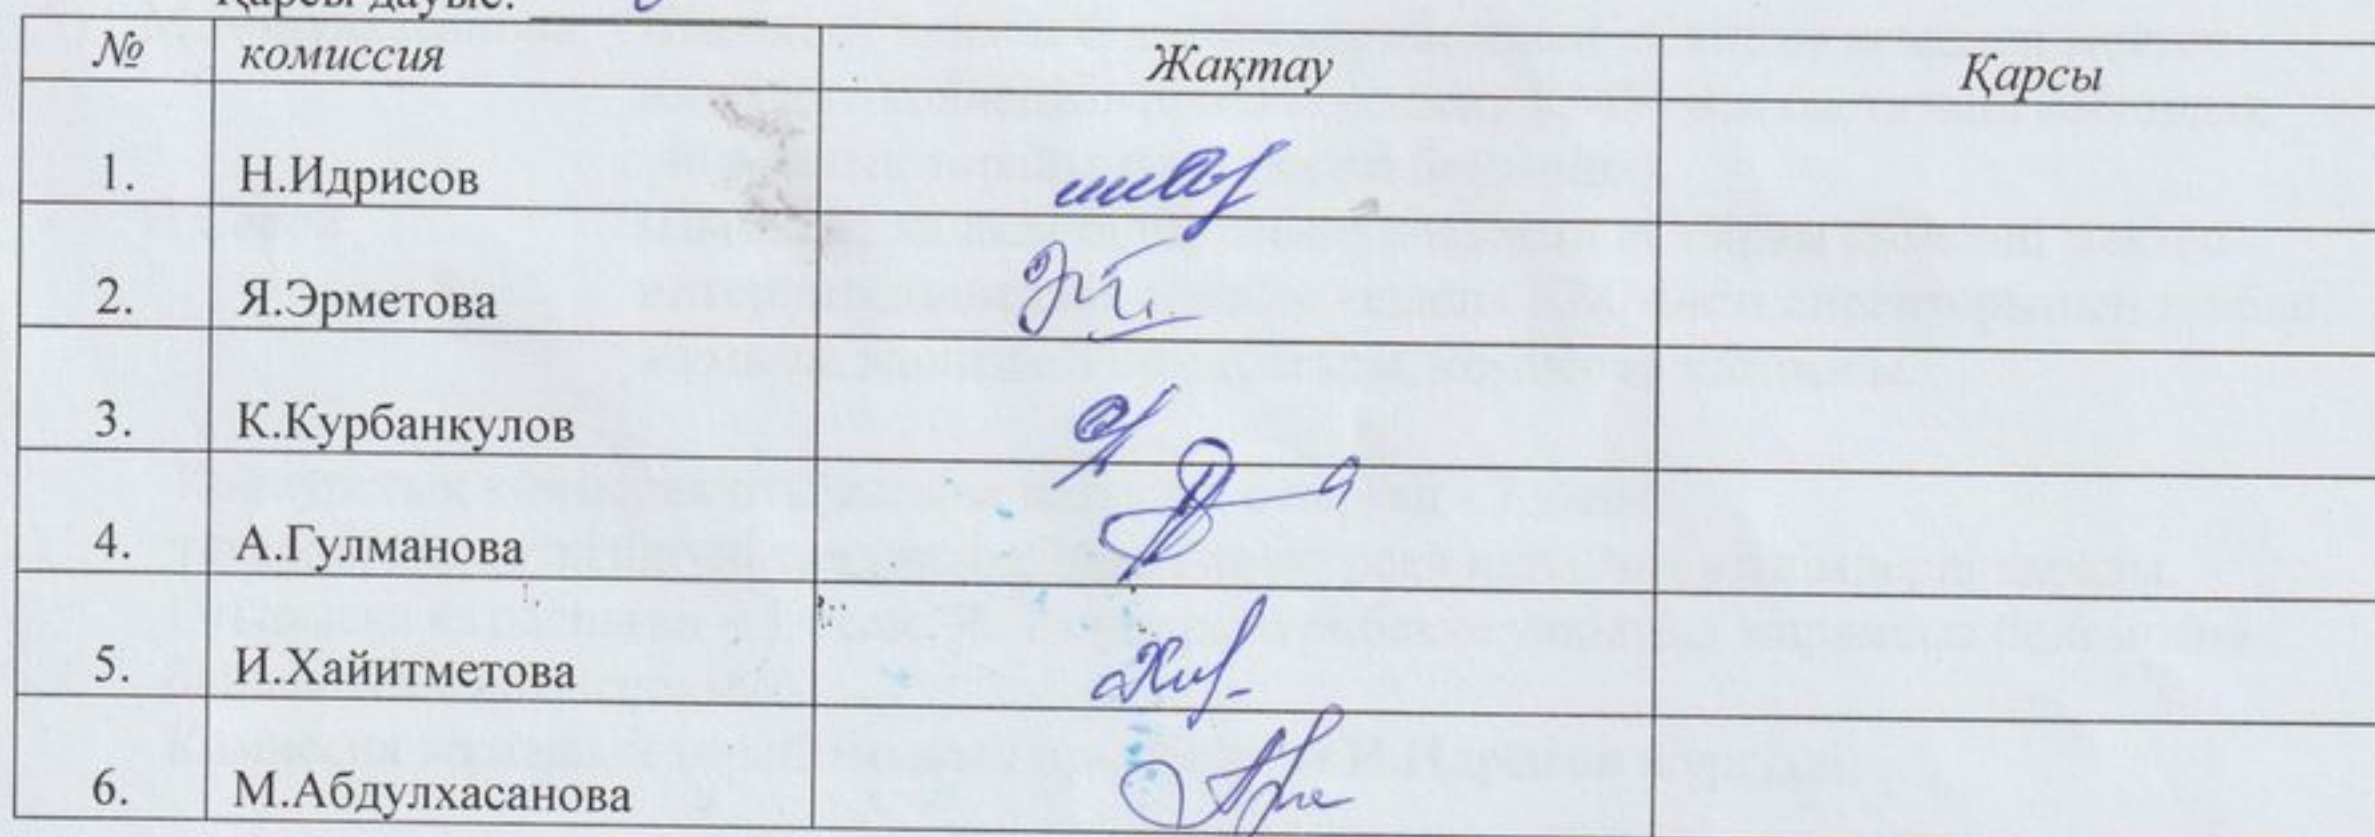 Қарсы дауыс:
№ комиссия Жақтау Қарсы
1. Н.Идрисов
2. Я.Эрметова
3. К.Курбанкулов
4. А.Гулманова
5. И.Хайитметова
6. М.Абдулхасанова